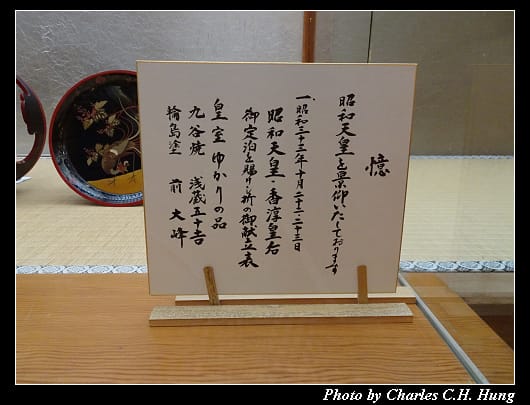 憶
昭和天皇を景仰いたしております
一、昭和三十三年十月二十二・二十三日
昭和天皇・香淳皇后
御定泊を賜りし折の御献立表
皇室ゆかりの品
九谷焼 浅蔵五十吉
輪島塗 前 大峰
Photo by Charles C.H. Hung